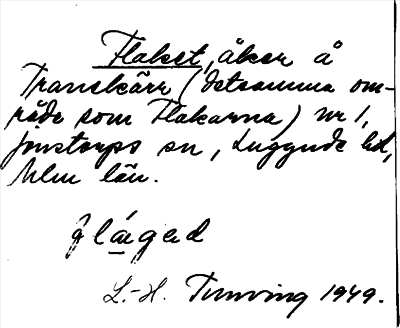 Flaket, åker å
Tranekärr (detsamma om-
råde som Flakarna) nr 1,
Jonstorps sn, Luggude hd,
Mlm län.
L.-H. Tunving 1949.